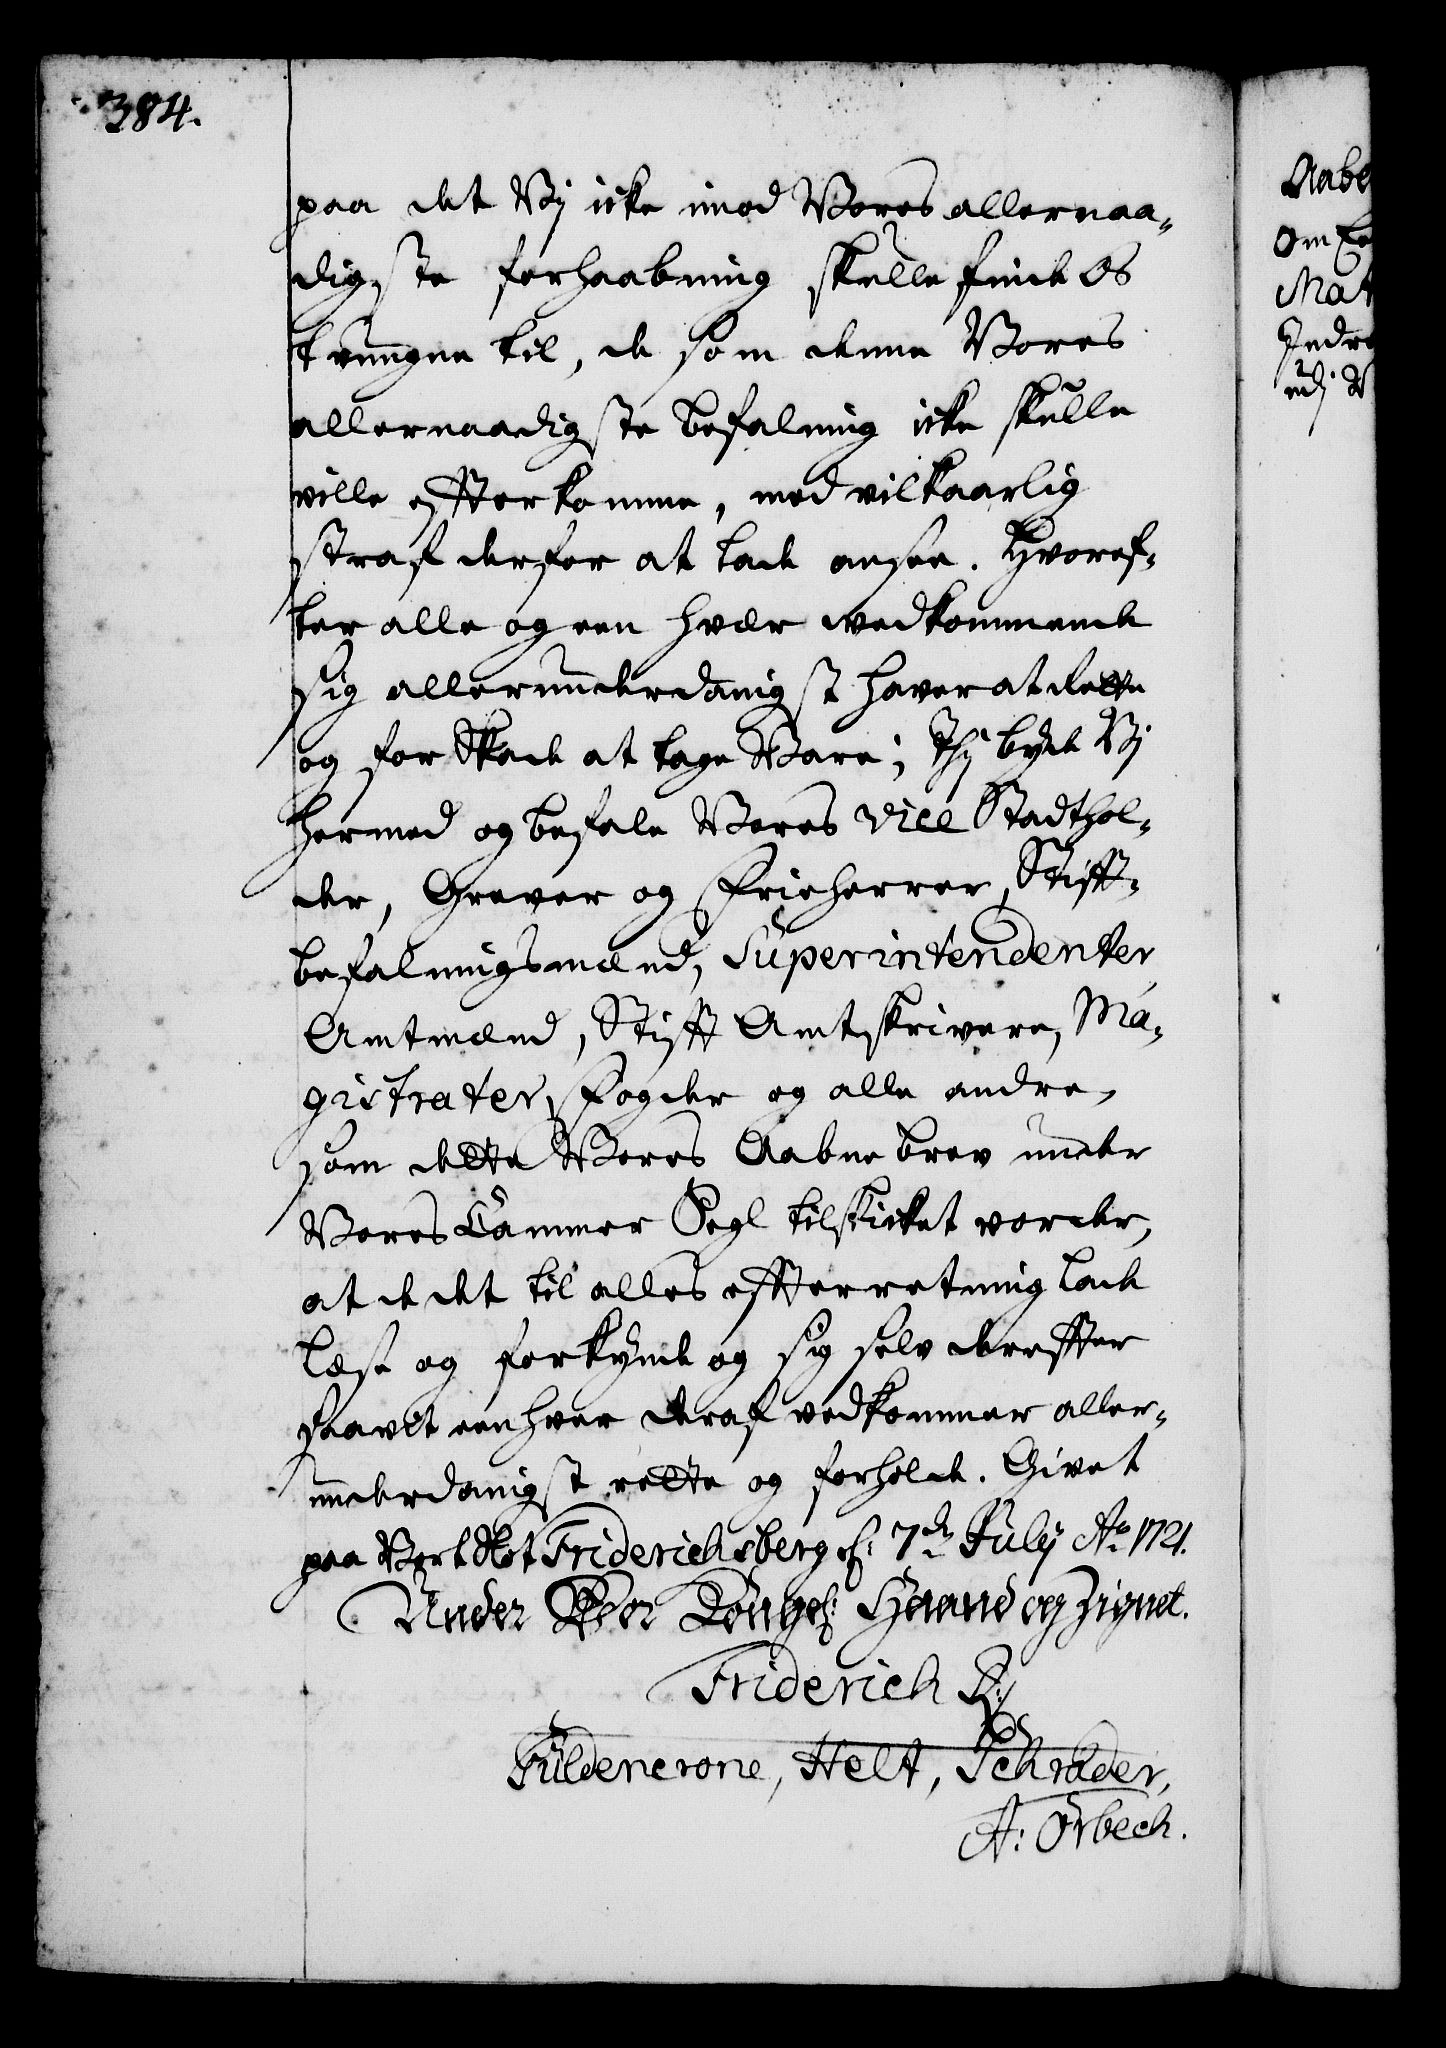 384.
paa det Vj icke imod Vores allernaa-
digste forhaabning skulle finde Os
tvungne til, de som denne Vores
allernaadigste befalning icke skulle
ville efterkomme, med vilkaarlig
straf derfor at lade ansee. Hvoref-
ter alle og een hvær vedkommende
sig allerunderdanigst haver at rette
og for Skade at tage Vare; Thj byde Vj
hermed og befale Vores Vice Stadthol-
der, Grever og Frieherrer, Stift-
befalningsmænd, Superintendenter,
Amtmænd, Stift Amtskrivere, Ma-
gistrater, Fogder og alle andre,
som dette Vores Aabne brev under
Vores Cammer Segl tilskicket vorder,
at de det til alles efterretning lade
læse og forkynde og sig selv derefter
saavit een hver deraf vedkommer aller-
underdanigst rette og forholde. Givet
paa Vort Slot Friderichsberg d: 7de Julij Ao 1721.
Under Vor Kongel: Haand og Zignet.
Friderich R:
Güldencrone, Helt, Schrader,
A: Ørbech.
Aabe
Om
Mat
Jndro
udj V